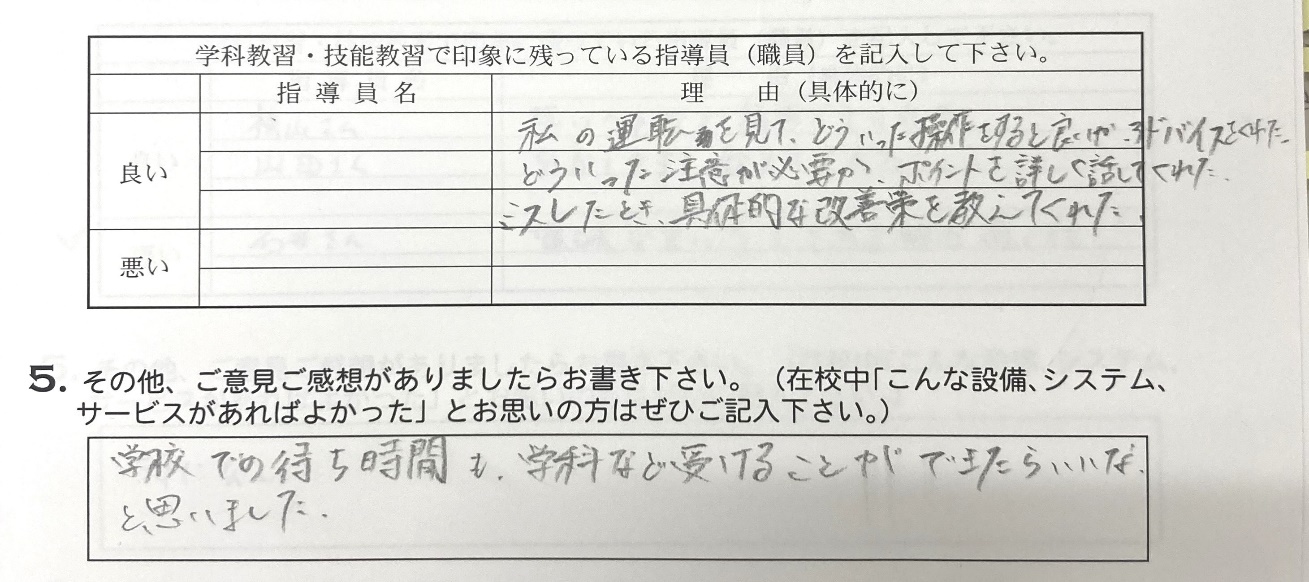 学科教習・技能教習で印象に残っている指導員（職員）を記入して下さい。
指導員名
理　由（具体的に）
良い
私の運転を見て、どういった操作をすると良いか、アドバイスをくれた
どういった注意が必要か、ポイントを詳しく話してくれた。
ミスしたとき、具体的な改善策を教えてくれた。
悪い
5. その他、ご意見ご感想がありましたらお書き下さい。（在校中「こんな設備、システム、
サービスがあればよかった」とお思いの方はぜひご記入下さい。）
学校での待ち時間も、学科など受けることができたらいいな、
と思いました。